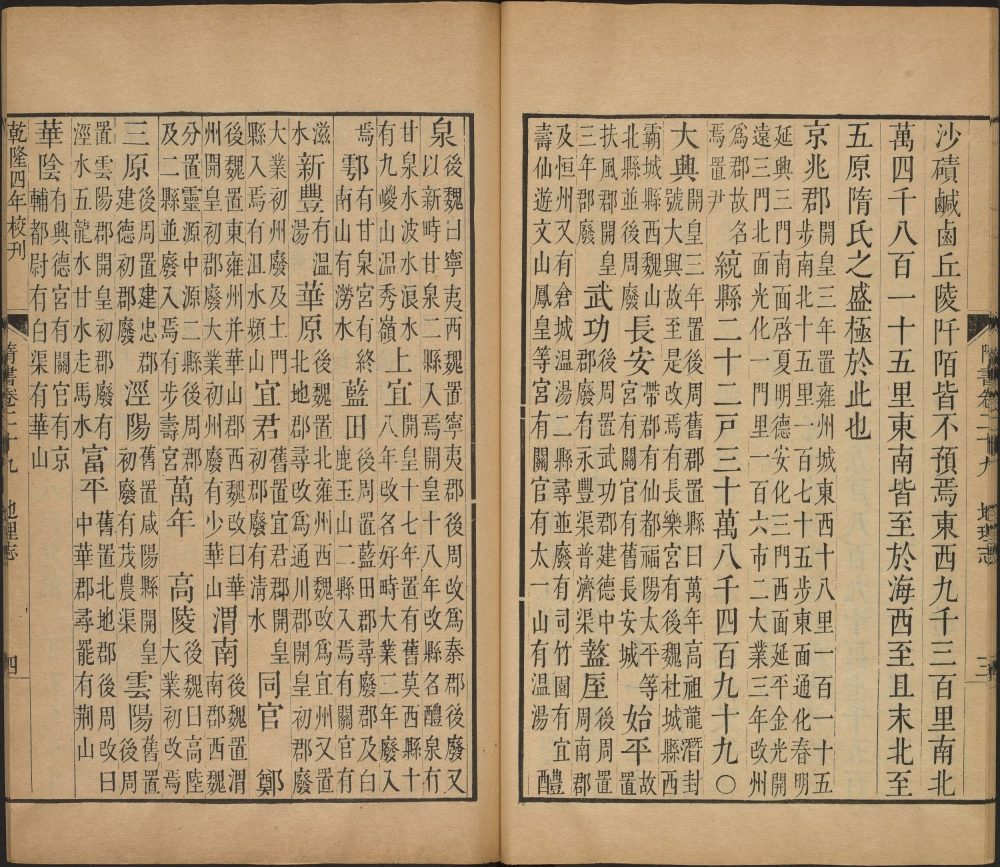 沙磧鹹鹵丘陵阡陌皆不預焉東西九千三百里南北
萬四千八百一十五里東南皆至於海西至且末北至
五原隋氏之盛極於此也
京兆郡開皇三年置雍州城東西十八里一百一十五步南北十五里一百七十五步東面通化春明
延興三門南面啓夏明德安化三門西面延平金光開遠三門北面光化一門里一百六市二大業三年改州
爲郡故名焉置尹統縣二十二戸三十萬八千四百九十九○
大興開皇三年置後周舊郡置縣曰萬年高祖龍潛封號大興故至是改焉有長樂宮有後魏杜城縣西
霸城縣西魏山北縣並後周廢長安帶郡有仙都福陽太平等宮有關官有舊長安城始平故置
扶風郡開皇三年郡廢武功後周置武功郡建德中郡廢有永豐渠普濟渠盩厔後周置周南郡
及恒州又有倉城溫湯二縣尋並廢有司竹園有宜壽仙遊文山鳳皇等宮有關官有太一山有溫湯醴
隋書卷二十九 地理志 三
泉後魏曰寧夷西魏置寧夷郡後周改爲秦郡後廢又以新畤甘泉二縣入焉開皇十八年改縣名醴泉有
甘泉水波水浪水有九嵕山溫秀嶺上宜開皇十七年置有舊莫西縣十八年改名好畤大業三年廢入
焉鄠有甘泉宮有終南山有澇水藍田後周置藍田郡尋廢郡及白鹿玉山二縣入焉有關官有
滋水新豐有溫湯華原後魏置北雍州西魏改爲宜州又置北地郡尋改爲通川郡開皇初郡廢
大業初州廢及土門縣入焉有沮水頻山宜君舊置宜君郡開皇初郡廢有清水同官 鄭
後魏置東雍州并華山郡西魏改曰華州開皇初郡廢大業初州廢有少華山渭南後魏置渭南郡西魏
分置靈源中源二縣後周郡及二縣並廢入焉有步壽宮萬年 高陵後魏曰高陸大業初改焉
三原後周置建忠郡建德初郡廢涇陽舊置咸陽縣開皇初廢有茂農渠雲陽舊置後周
置雲陽郡開皇初郡廢有涇水五龍水甘水走馬水富平舊置北地郡後周改曰中華郡尋罷有荆山
華陰有興德宮有關官有京輔都尉有白渠有華山
乾隆四年校刊 隋書卷二十九 地理志 四